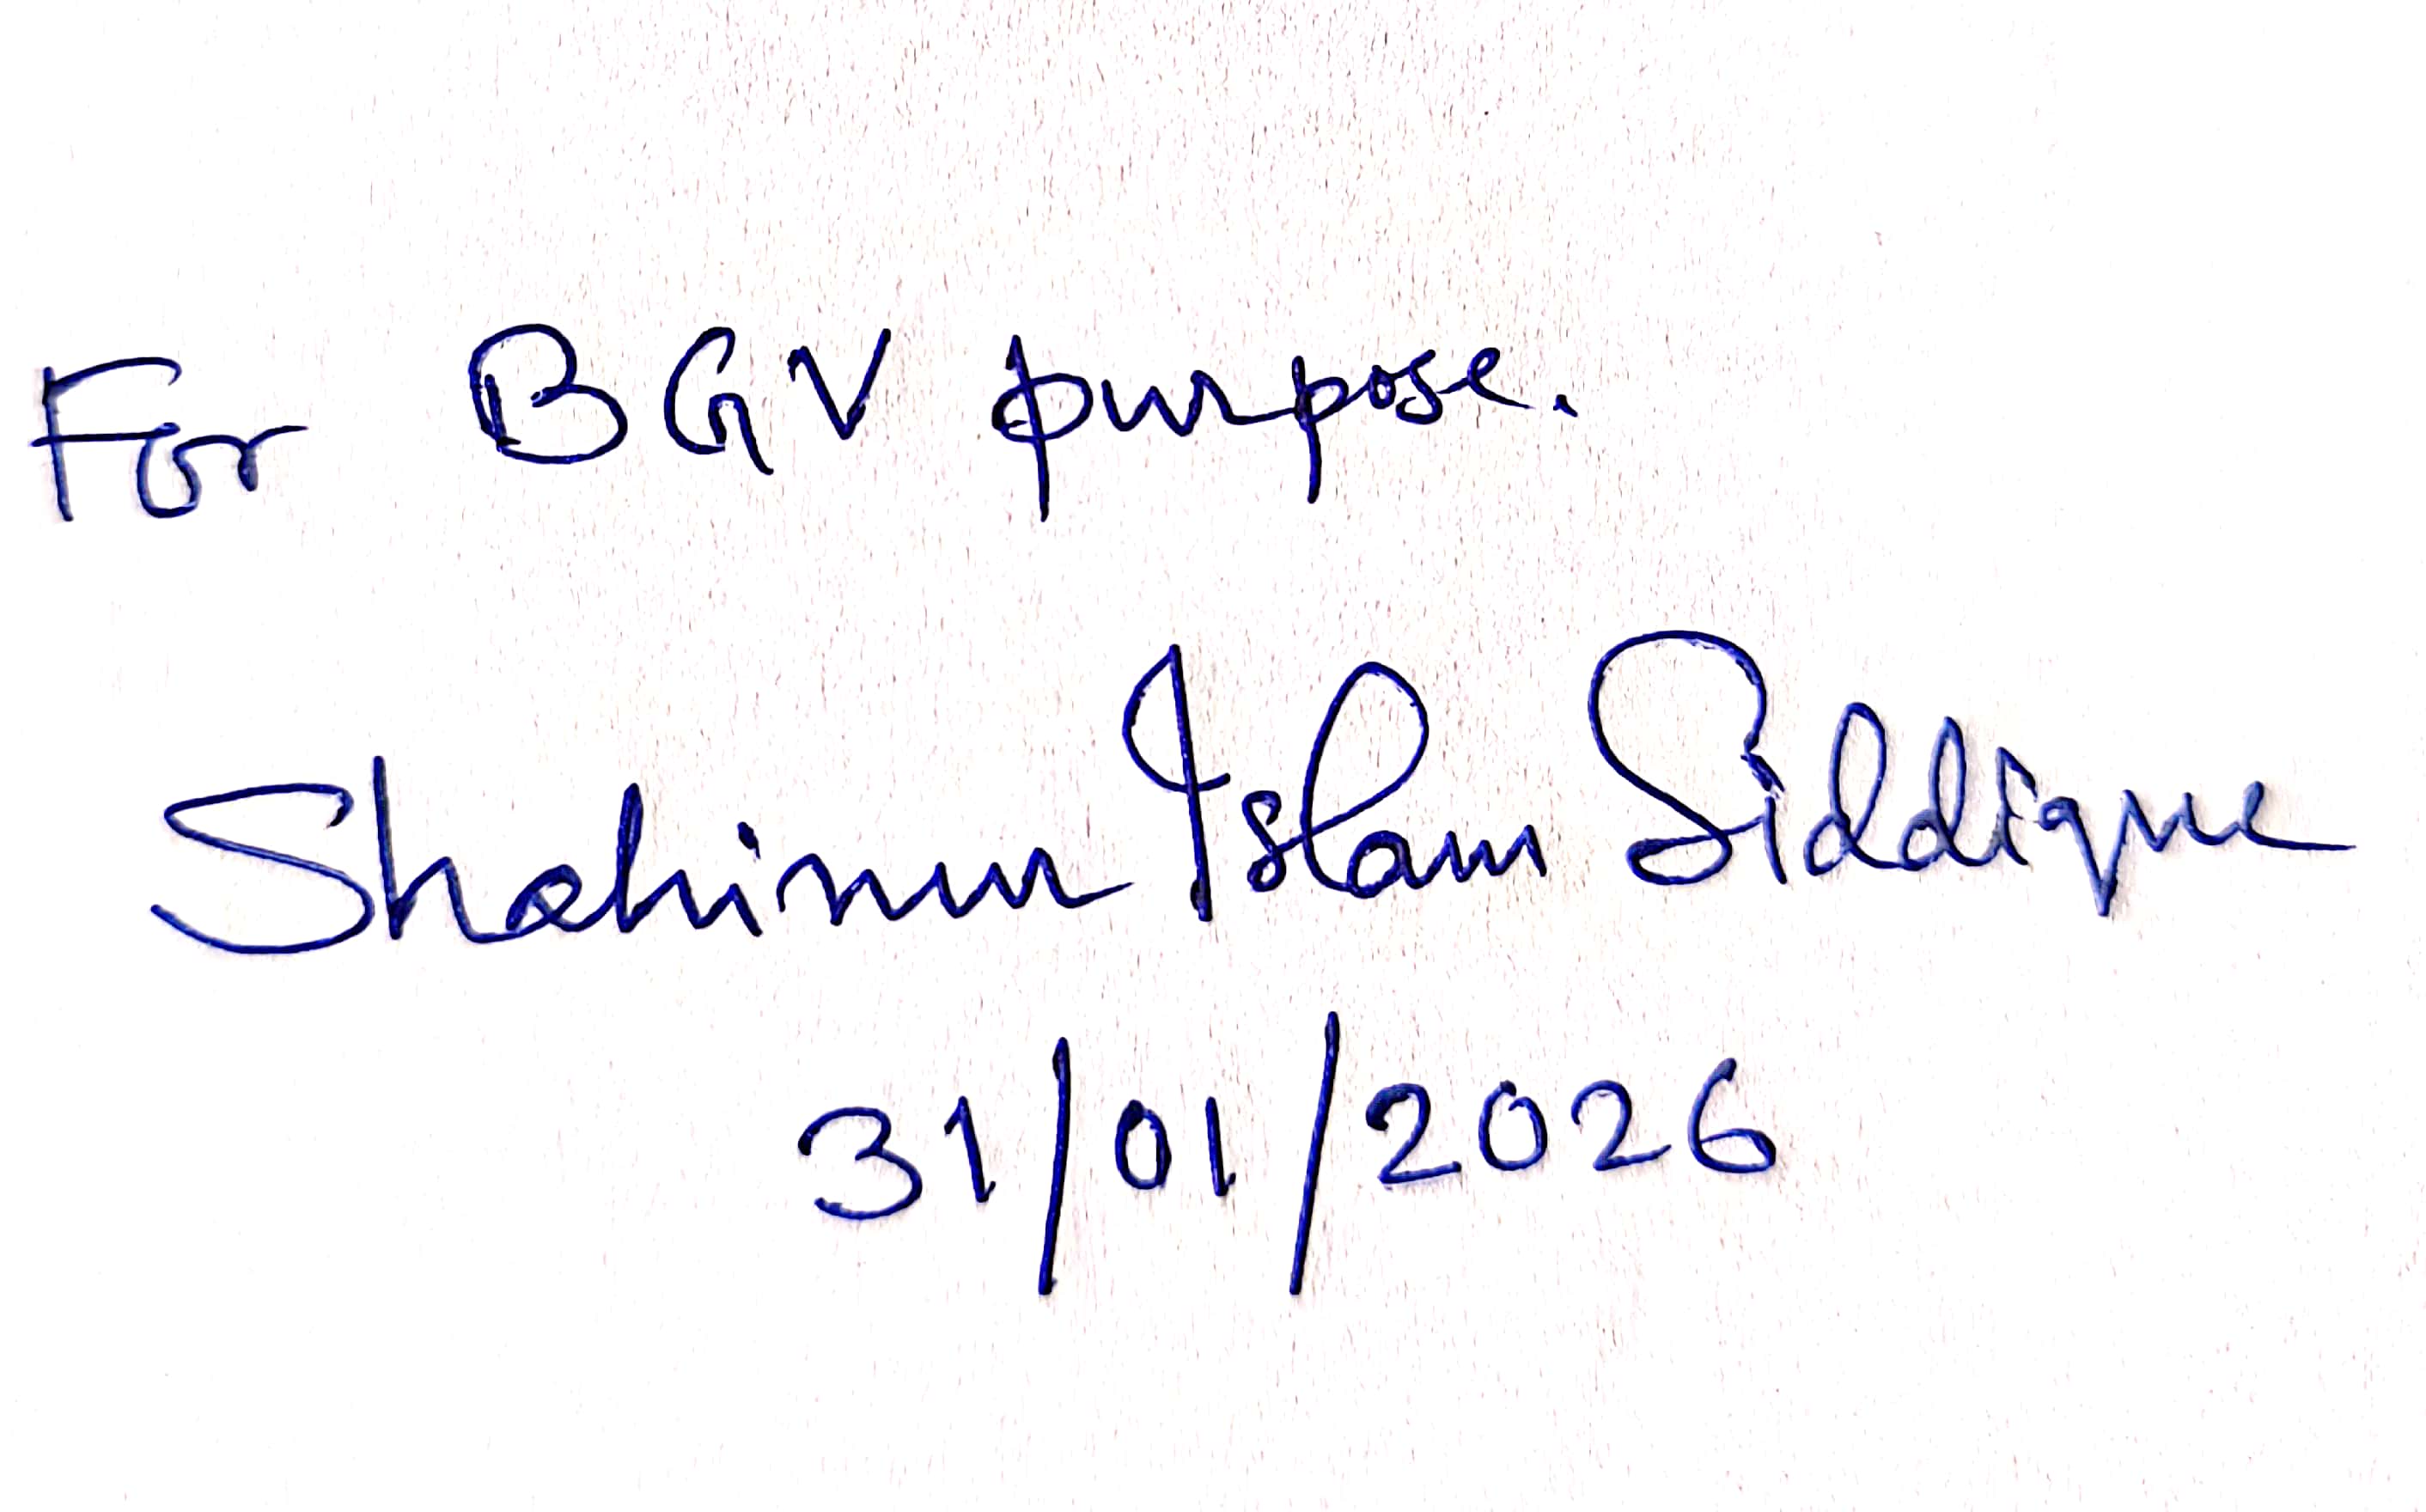 For BGV purpose.
Shahinur Islam Siddique
31/01/2026